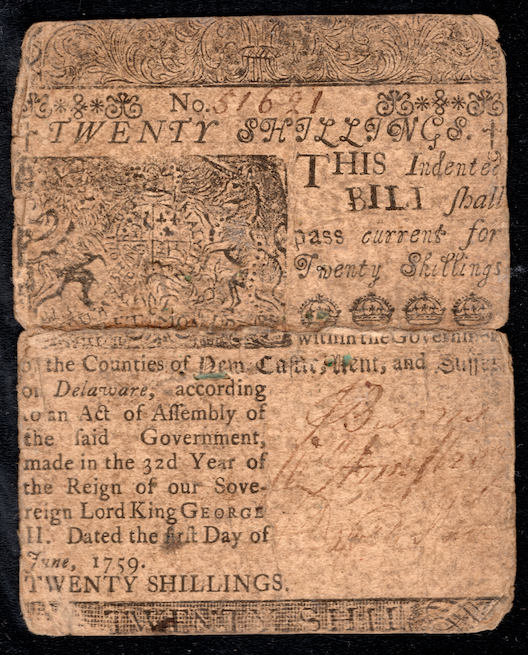 No. 51621
TWENTY SHILLINGS.
THIS Indented
BILL shall
pass current for
Twenty Shillings
within the Government
of the Counties of New Castle, Kent, and Sussex
on Delaware, according
to an Act of Aſſembly of
the ſaid Government,
made in the 32d Year of
the Reign of our Sove-
reign Lord King GEORGE
II. Dated the firſt Day of
June, 1759.
TWENTY SHILLINGS.
TWENTY SHILL